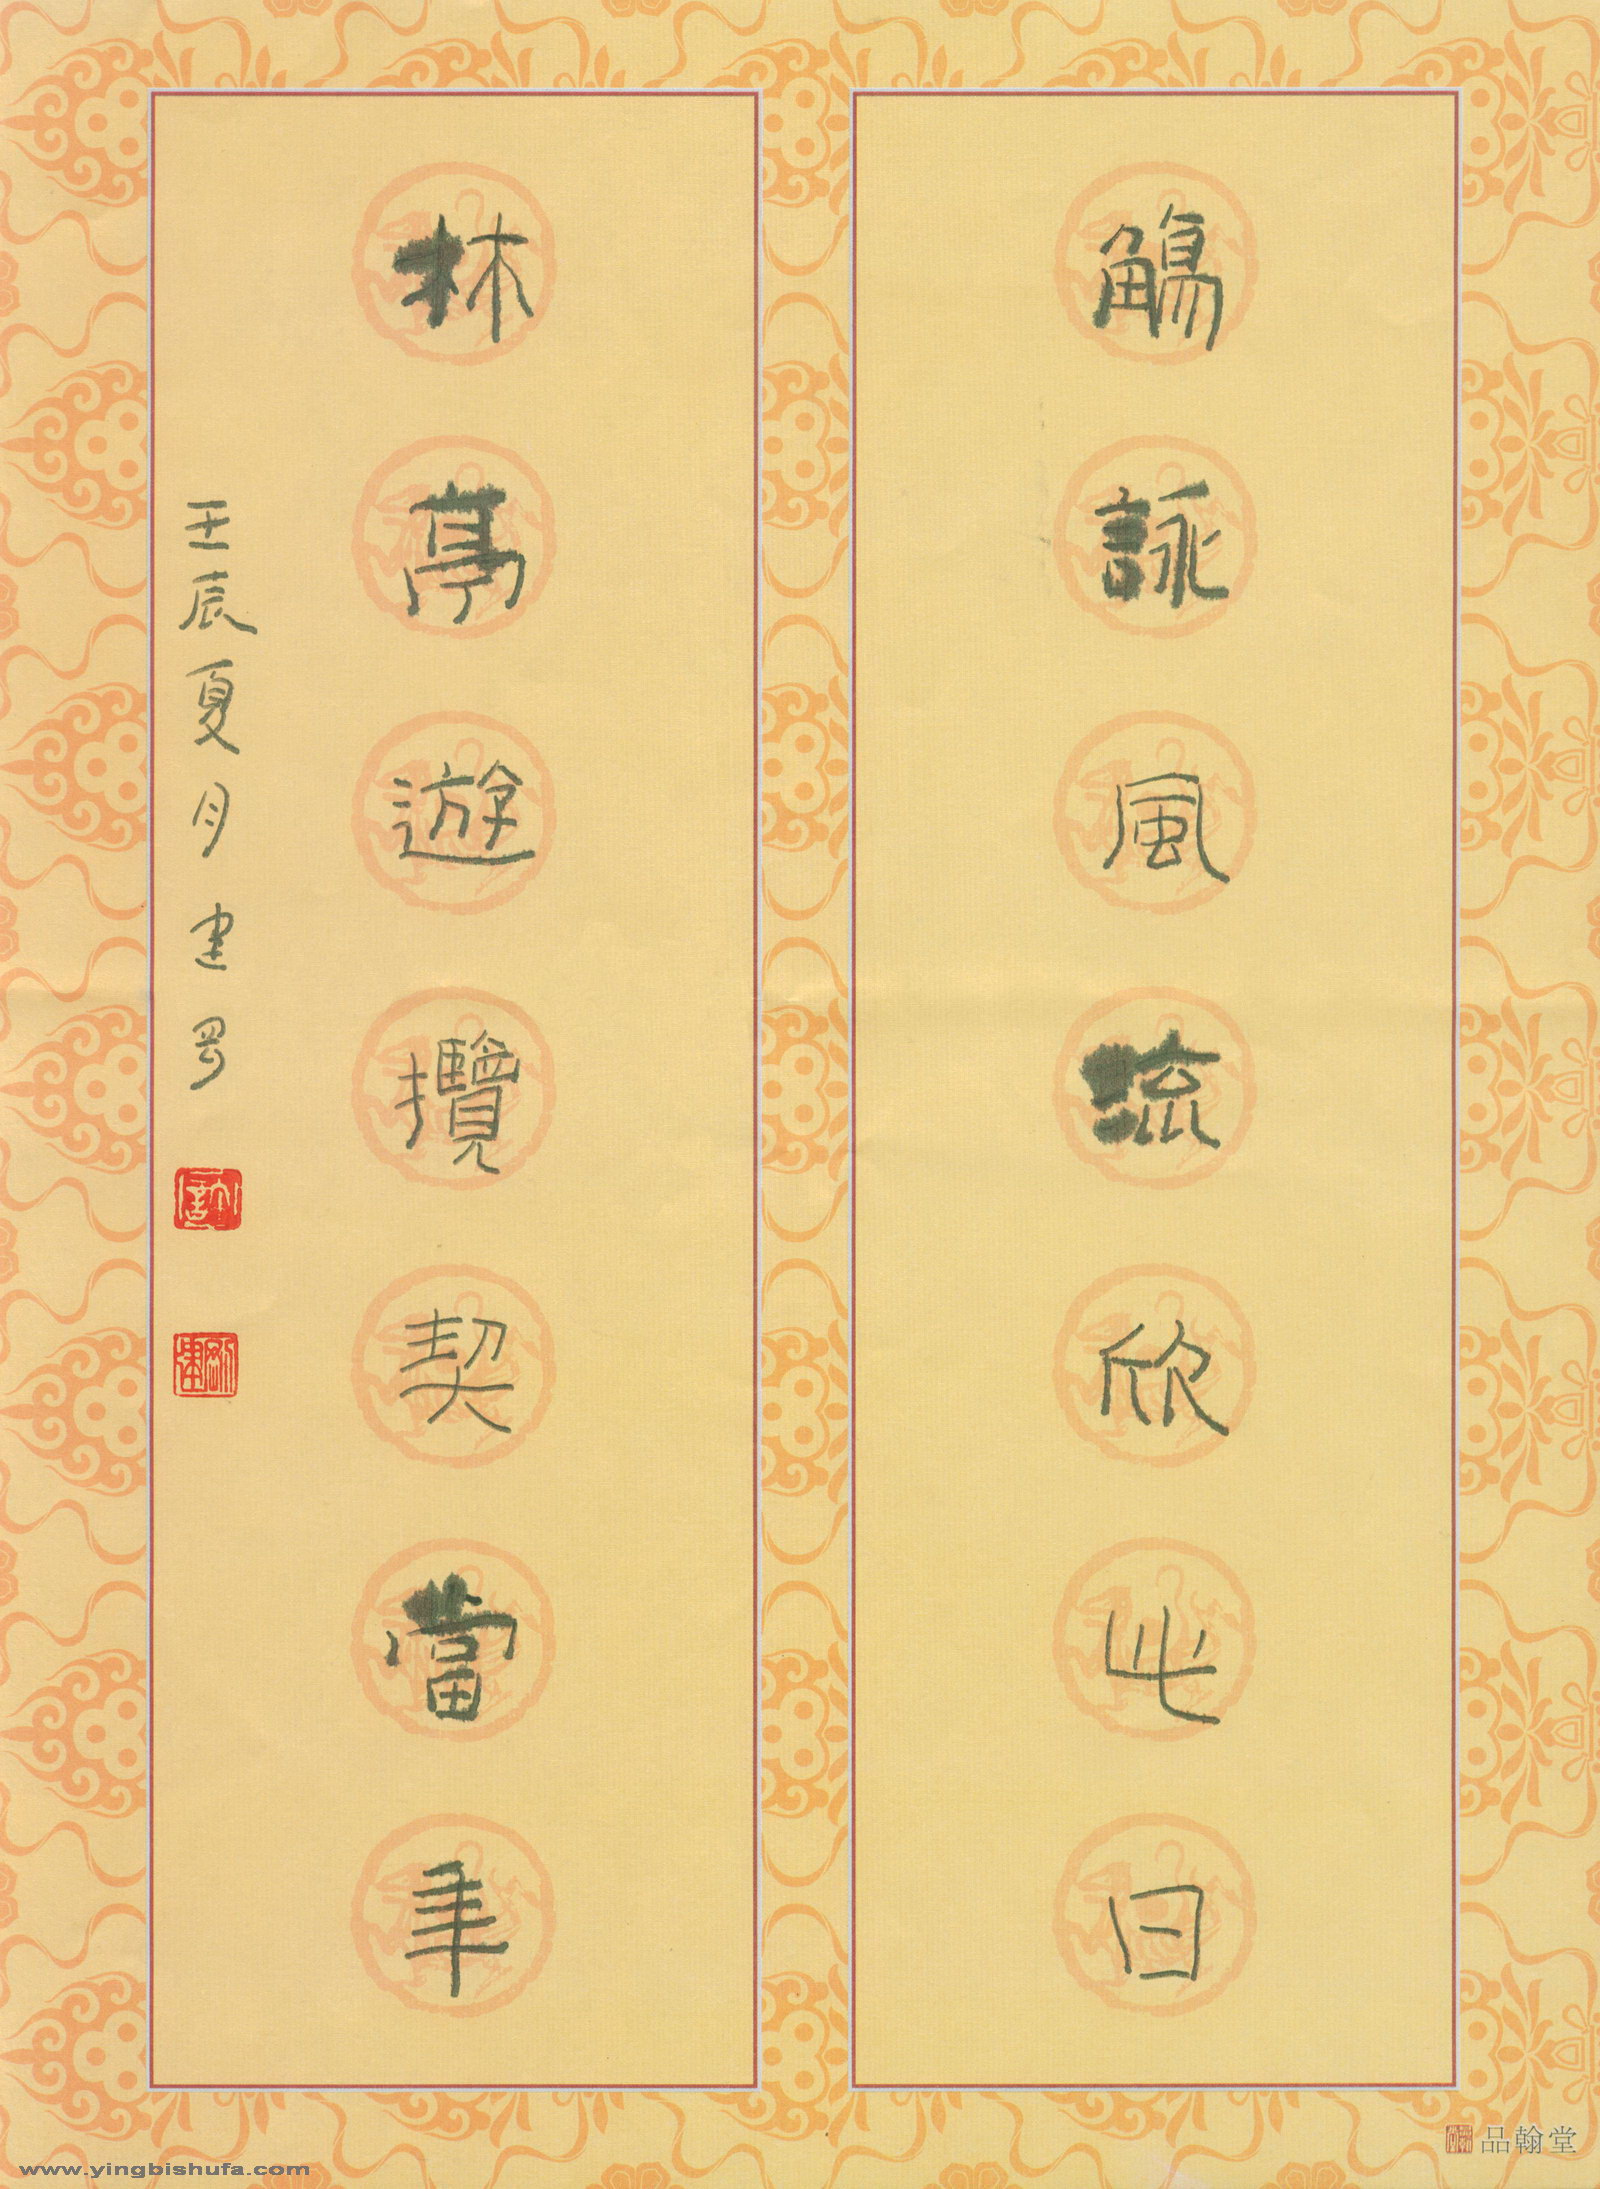 觴詠風流欣此日
林亭遊攬契當年
壬辰夏月建罡
品翰堂
www.yingbishufa.com